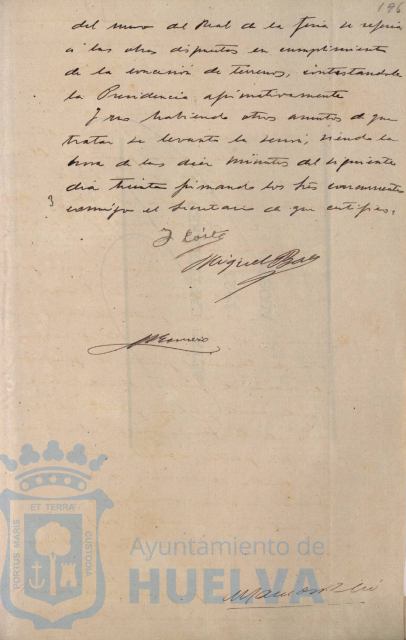 196
del muro del Real de la feria se referia
a las obras dispuestas en cumplimiento
de la concesión de terrenos, contestandole
la Presidencia afirmativamente
Y no habiendo otros asuntos de que
tratar se levantó la sesion, siendo la
hora de las diez minutos del siguiente
dia treinta firmando los Sres concurrentes
conmigo el Secretario de que certifico.
Miguel Baez
PORTUS MARIS
ET TERRÆ
CUSTODIA
Ayuntamiento de
HUELVA